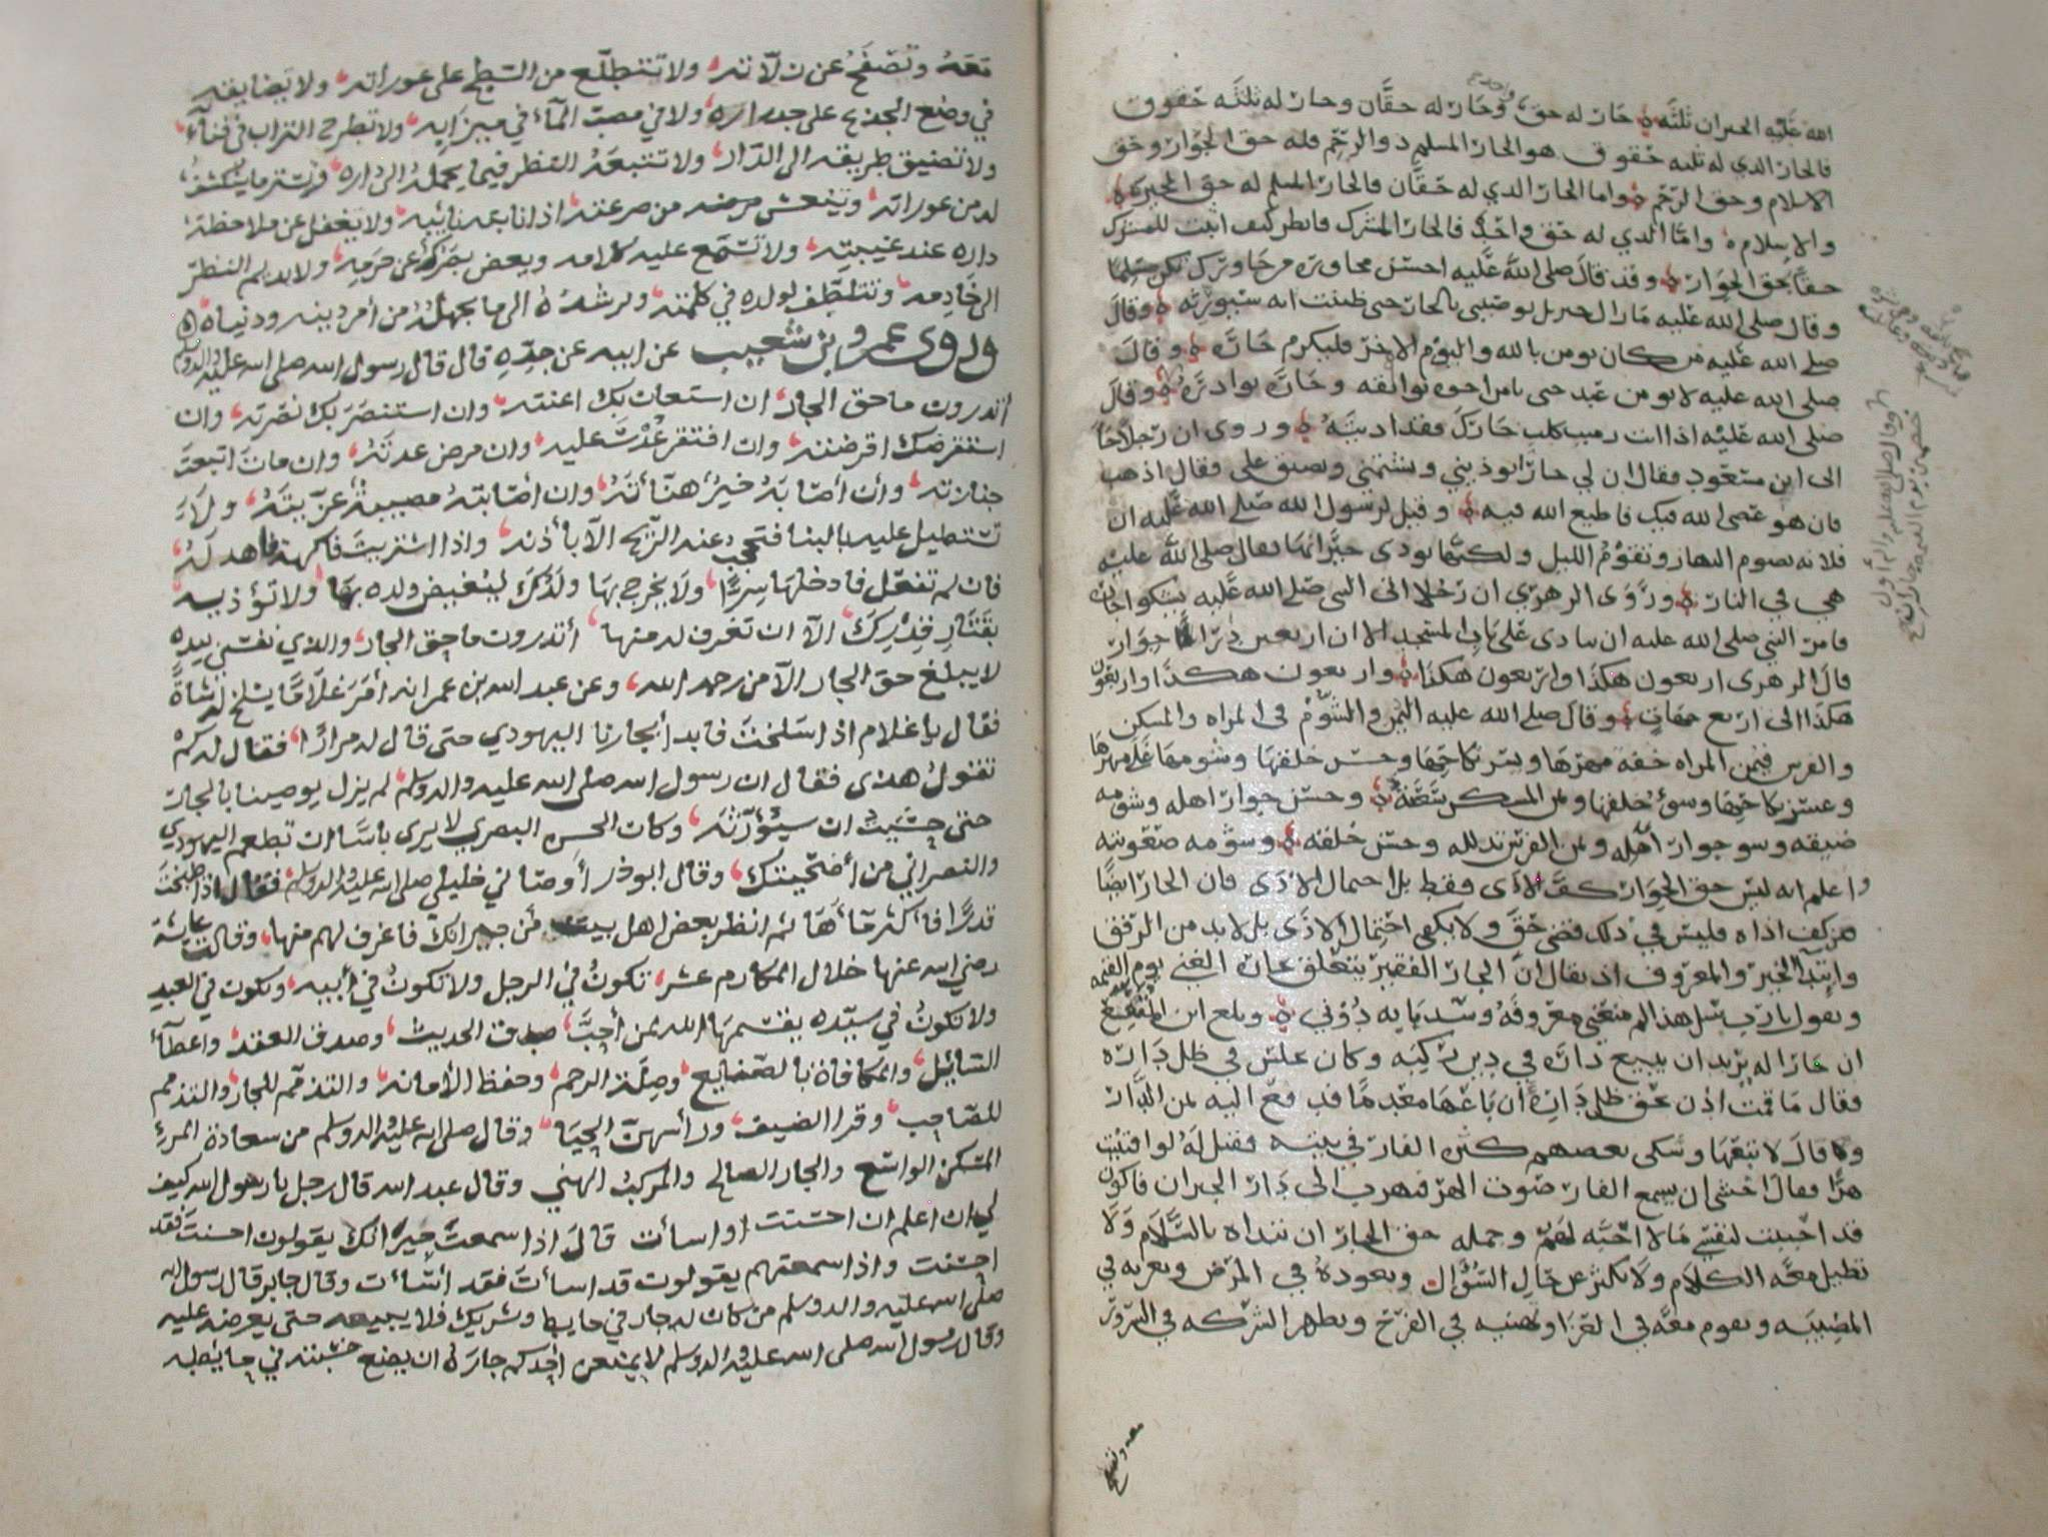 الله عليه الجيران ثلثة جار له حق واحد وجار له حقان وجار له ثلثه حقوق
فالجار الذي له ثلثه حقوق هو الجار المسلم ذو الرحم فله حق الجوار وحق
الاسلام وحق الرحم واما الجار الذي له حقان فالجار المسلم له حق الجيره
والاسلام واما الذي له حق واحد فالجار المشرك فانظر كيف اثبت للمشرك
حقا بحق الجوار وقد قال صلى الله عليه احسن مجاوره من جاورك تكن مسلما
وقال صلى الله عليه مازال جبريل يوصيني بالجار حتى ظننت انه سيورثه وقال
صلى الله عليه من كان يومن بالله واليوم الاخر فليكرم جاره وقال
صلى الله عليه لا يومن عبد حتى يامن جاره بوائقه
صلى الله عليه اذا انت رميت كلب جارك فقد اذيته وروى ان رجلا جا
الى ابن مسعود فقال ان لي جارا يوذيني ويشتمني ويضيق علي فقال اذهب
فان هو عصى الله فيك فاطع الله فيه وقيل لرسول الله صلى الله عليه ان
فلانه تصوم النهار وتقوم الليل ولكنها توذى جيرانها فقال صلى الله عليه
هي في النار وروى الزهري ان رجلا اتى النبي صلى الله عليه يشكوا جاره
فامر النبي صلى الله عليه ان ينادى على باب المسجد الا ان اربعين دارا جوار
قال الزهرى اربعون هكذا واربعون هكذا واربعون هكذا واربعون
هكذا الى اربع جهات وقال صلى الله عليه اليمن والشوم في المراه والمسكن
والفرس فيمن المراه خفة مهرها ويسر نكاحها وحسن خلقها وشومها غلا مهرها
وعسر نكاحها وسوء خلقها ويمن المسكن سعته وحسن جوار اهله وشومه
ضيقه وسو جوار اهله ويمن الفرس تذلله وحسن خلقه وشومه صعوبته
واعلم انه ليس حق الجوار كف الاذى فقط بل احتمال الاذى فان الجار ايضا
من كف اذاه فليس في ذلك قضى حق ولا يكفى احتمال الاذى بل لابد من الرفق
وابتدا الخير والمعروف اذ يقال ان الجار الفقير يتعلق بجاره الغني يوم القيمه
ويقول يارب سل هذا لم منعني معروفه وسد بابه دوني وبلغ ابن المقفع
ان جارا له يريد ان يبيع داره في دين ركبه وكان يجلس في ظل داره
فقال ما قمت اذن بحق ظل داره ان باعها معدما فدفع اليه ثمن الدار
وقال لا تبعها وشكى بعضهم كثره الفار في بيته فقيل له لو اقتنيت
هرا فقال اخشى ان يسمع الفار صوت الهر فيهرب الى دار الجيران فاكون
قد احببت لنفسي ما لا احبه لهم وجمله حق الجار ان تبداه بالسلام ولا
تطيل معه الكلام ولا يكثر عن حال السؤال ويعوده في المرض ويعزيه في
المصيبه ويقوم معه في العزا ويهنيه في الفرح ويظهر الشركه في السرور
معه وتصفح
معه وتصفح عن زلاته ولا تتطلع من السطح على عوراته ولا يضايقه
في وضع الجذع على جداره ولا في مصب الماء في ميزابه ولا تطرح التراب في فنائه
ولا تضيق طريقه الى الدار ولا تتبعه النظر فيما يحمله الى داره وتستر ما ينكشف
له من عوراته وينعش مرضه من صرعته اذا نابته نائبه ولا يغفل عن ملاحظة
داره عند غيبته ولا تسمع عليه كلامه ويغض بصره عن حرمه ولا يديم النظر
الى خادمه وتتلطف لولده في كلمته ويرشده الى ما يجهله من أمر دينه ودنياه
وروى عمرو بن شعيب عن ابيه عن جده قال قال رسول الله صلى الله عليه واله وسلم
اتدرون ما حق الجار ان استعان بك اعنته وان استنصر بك نصرته وان
استقرضك اقرضته وان افتقر عدت عليه وان مرض عدته وان مات اتبعت
جنازته وان اصابه خير هنأته وان أصابته مصيبة عزيته ولا
تستطيل عليه بالبنا فتحجب عنه الريح الا بأذنه واذا اشتريت فاكهة فاهد له
فان لم تفعل فادخلها سرا ولا يخرج بها ولدك ليغيض ولده بها ولا تؤذيه
بقتار قدرك الا ان تغرف له منها أتدرون ما حق الجار والذي نفسي بيده
لا يبلغ حق الجار الا من رحمه الله وعن عبد الله بن عمر انه أمر غلاما يسلخ له شاة
فقال يا غلام اذا سلخت فابدأ بجارنا اليهودي حتى قال له مرارا فقال له كم
تقول هذى فقال ان رسول الله صلى الله عليه واله وسلم لم يزل يوصينا بالجار
حتى خشيت ان سيؤرثه وكان الحسن البصري لا يرى بأسا ان تطعم اليهودي
والنصراني من أضحيتك وقال ابوذر أوصاني خليلي صلى الله عليه واله وسلم فقال اذا طبخت
قدرا فأكثر مأها ثم انظر بعض اهل بيت من جيرانك فاغرف لهم منها وقالت عايشة
رضي الله عنها خلال المكارم عشر تكون في الرجل ولا تكون في أبيه وتكون في العبد
ولا تكون في سيده يقسمها الله لمن أحب صدق الحديث وصدق العقد واعطآء
السايل والمكافاة بالصنايع وصلة الرحم وحفظ الأمانه والتذمم للجار والتذمم
للصاحب وقرا الضيف ورأسهن الحيا وقال صلى الله عليه واله وسلم من سعادة المرء
المسكن الواسع والجار الصالح والمركب الهني وقال عبد الله قال رجل يا رسول الله كيف
لي ان اعلم ان احسنت او اسأت قال اذا سمعت جيرانك يقولون احسنت فقد
احسنت واذا سمعتهم يقولون قد اسأت فقد أسأت وقال جابر قال رسول الله
صلى الله عليه واله وسلم من كان له جار في حايط وشريك فلا يبيعه حتى يعرضه عليه
وقال رسول الله صلى الله عليه واله وسلم لا يمنعن احدكم جاره ان يضع خشبته في حايطه